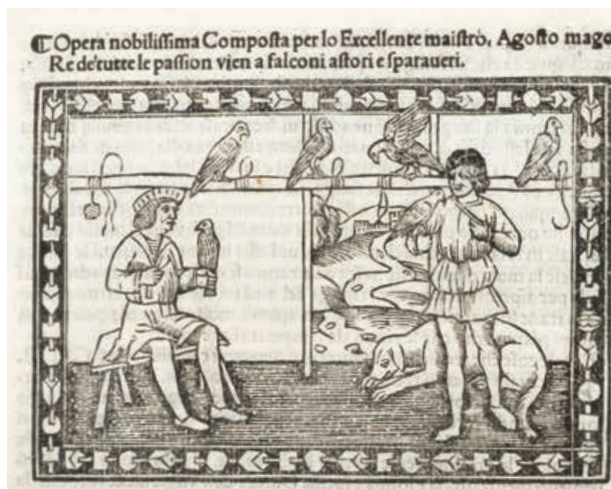 ❡ Opera nobilissima Composta per lo Excellente maistro, Agosto mago
Re de'tutte le passion vien a falconi astori e sparaueri.